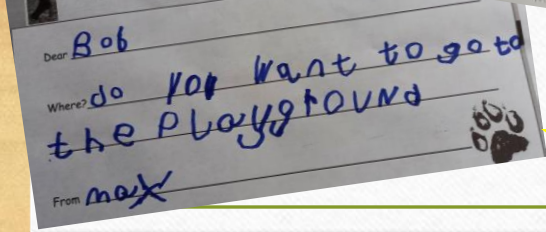 Dear Bob
Where? do you want to go to
the PLaygrOUNd
From max